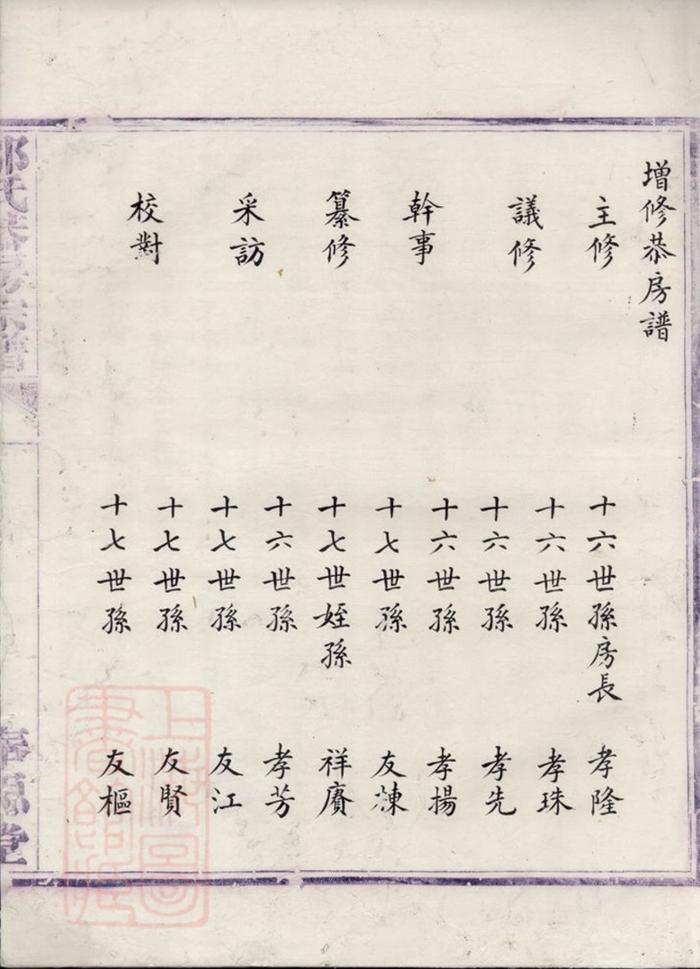 增修恭房譜
主修
十六世孫房長
孝隆
議修
十六世孫
孝珠
十六世孫
孝先
幹事
十六世孫
孝揚
十七世孫
友棟
纂修
十七世姪孫
祥賡
采訪
十六世孫
孝芳
十七世孫
友江
校對
十七世孫
友賢
十七世孫
友樞
上海圖書館藏